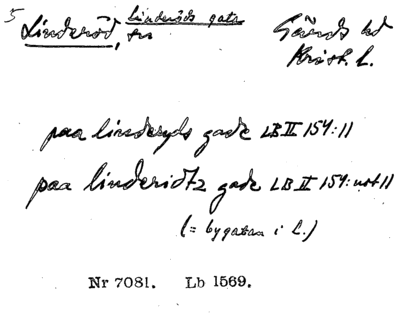 5 Linderöd, linderöds gata Gärds hd
sn Krist. L.
paa linderyds gade LB II 154:11
paa linderidtz gade LB II 154: not 11
(= bygatan i L.)
Nr 7081. Lb 1569.